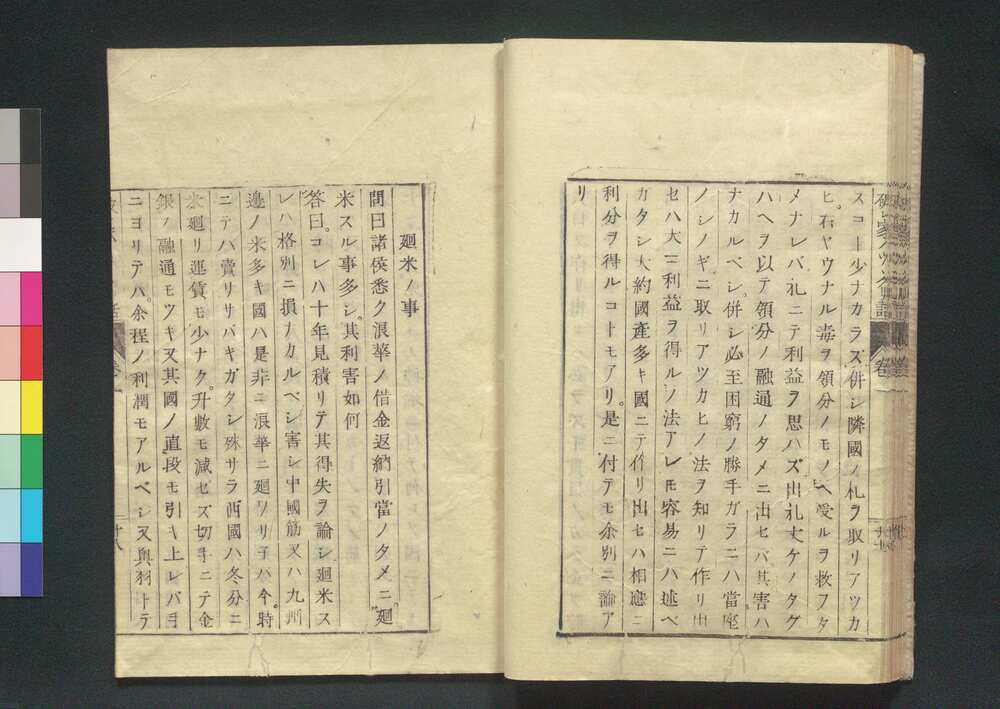 スコト少ナカラズ併シ隣國ノ札ヲ取リアツカ
ヒ。石ヤウナル毒ヲ領分ノモノヘ受ルヲ救フタ
メナレバ札ニテ利益ヲ思ハズ出札丈ケノタグ
ハヘヲ以テ領分ノ融通ノタメニ出セバ其害ハ
ナカルベシ。併シ必至困窮ノ勝手ガラニハ當座
ノシノギニ取リアツカヒノ法ヲ知リテ作リ出
セハ大ニ利益ヲ得ルノ法アレモ容易ニハ述ベ
カタシ大約國産多キ國ニテ作リ出セハ相應ニ
利分ヲ得ルコトモアリ。是ニ付テモ余別ニ論ア
リ
廻米ノ事
問曰諸侯悉ク浪華ノ借金返納引當ノタメニ。廻
米スル事多シ。其利害如何
答曰。コレハ十年見積リテ其得失ヲ論シ廻米ス
レハ格別ニ損ナカルベシ害シ中國筋又ハ九州
邊ノ米多キ國ハ是非ニ浪華ニ廻ワリ子バ今。時
ニテハ賣リサバキガタシ殊サラ西國ハ冬分ニ
米廻リ運賃モ少ナク。升數モ減セズ切手ニテ金
銀ノ融通モツキ又其國ノ直段モ引キ上レバヨ
ニヨリテハ。余程ノ利潤モアルベシ又奥羽トテ
卷一
十八